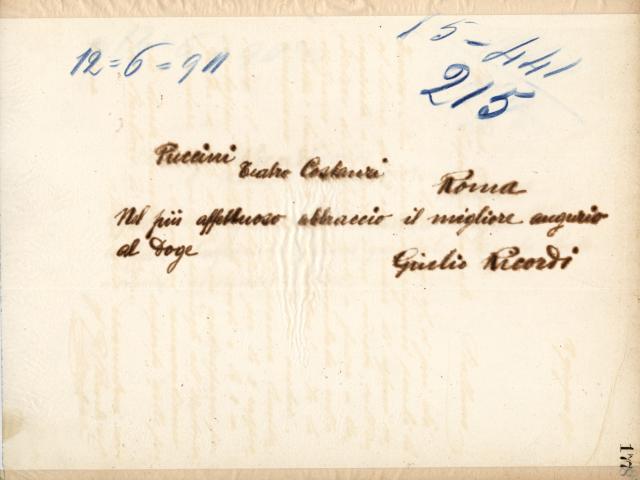 12=6=911
15-441
215
Puccini
Teatro Costanzi
Roma
Nel più affettuoso abbraccio il migliore augurio
al Doge
Giulio Ricordi
178